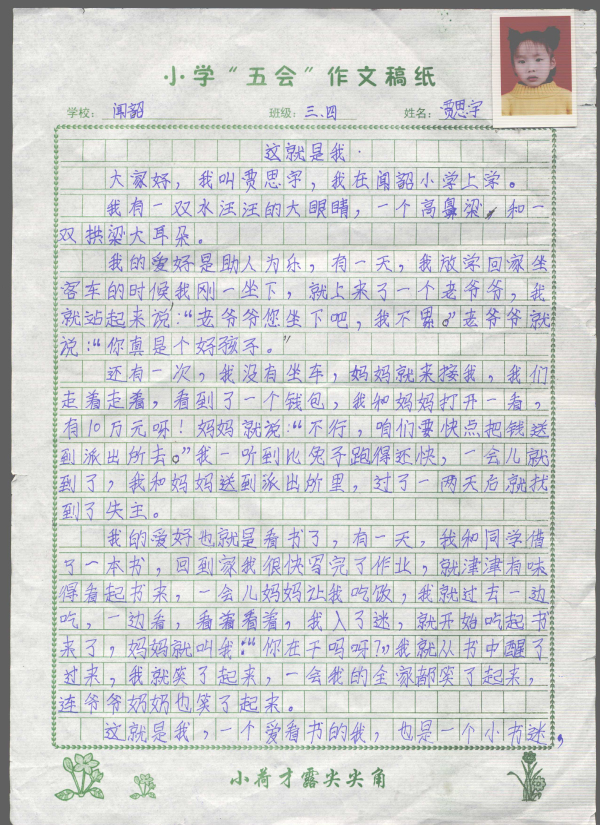 小学“五会”作文稿纸
学校：闻韶 班级：三、四 姓名：贾思宇
这就是我.
大家好，我叫贾思宇，我在闻韶小学上学。
我有一双水汪汪的大眼睛，一个高鼻梁，和一
双拱梁大耳朵。
我的爱好是助人为乐，有一天，我放学回家坐
客车的时候我刚一坐下，就上来了一个老爷爷，我
就站起来说：“老爷爷您坐下吧，我不累。”老爷爷就
说：“你真是个好孩子。”
还有一次，我没有坐车，妈妈就来接我，我们
走着走着，看到了一个钱包，我和妈妈打开一看，
有10万元呀！妈妈就说：“不行，咱们要快点把钱送
到派出所去。”我一听到比兔子跑得还快，一会儿就
到了，我和妈妈送到派出所里，过了一两天后就找
到了失主。
我的爱好也就是看书了，有一天，我和同学借
了一本书，回到家我很快写完了作业，就津津有味
得看起书来，一会儿妈妈让我吃饭，我就过去一边
吃，一边看，看着看着，我入了迷，就开始吃起书
来了，妈妈就叫我：“你在干吗呀？”我就从书中醒了
过来，我就笑了起来，一会我的全家都笑了起来，
连爷爷奶奶也笑了起来。
这就是我，一个爱看书的我，也是一个小书迷，
小荷才露尖尖角